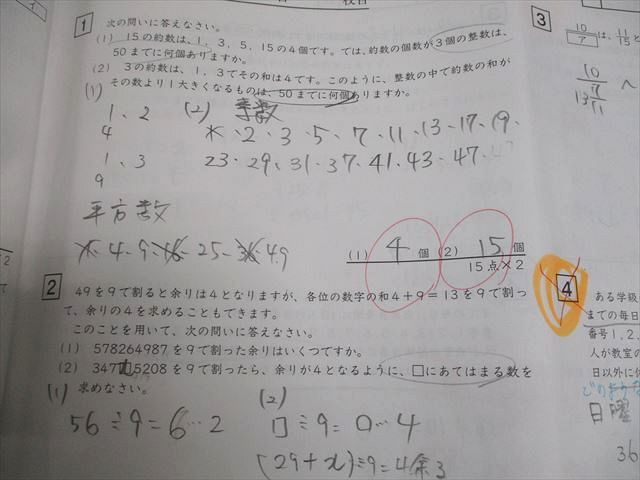 1
次の問いに答えなさい。
(1) 15の約数は、1，3，5，15の4個です。では、約数の個数が3個の整数は、
50までに何個ありますか。
(2) 3の約数は、1，3でその和は4です。このように、整数の中で約数の和が
その数より1大きくなるものは、50までに何個ありますか。
(1)
1、2
4
1、3
9
平方数
4・9・16・25・36・49
(2) 素数
2・3・5・7・11・13・17・19・
23・29・31・37・41・43・47
(1) 4個 (2) 15個
15点×2
2
49を9で割ると余りは4となりますが、各位の数字の和4＋9＝13を9で割っ
て、余りの4を求めることもできます。
このことを用いて、次の問いに答えなさい。
(1) 578264987を9で割った余りはいくつですか。
(2) 347□5208を9で割ったら、余りが4となるように、□にあてはまる数を
求めなさい。
(1)
56÷9＝6…2
(2)
□÷9＝○…4
(29+x)÷9=4余3
3
10
7
は、
11
15
と
10
7
13
11
へ
4
ある学級
までの毎日
番号1，2，
人が教室の
日以外に休
どのような
日曜
36